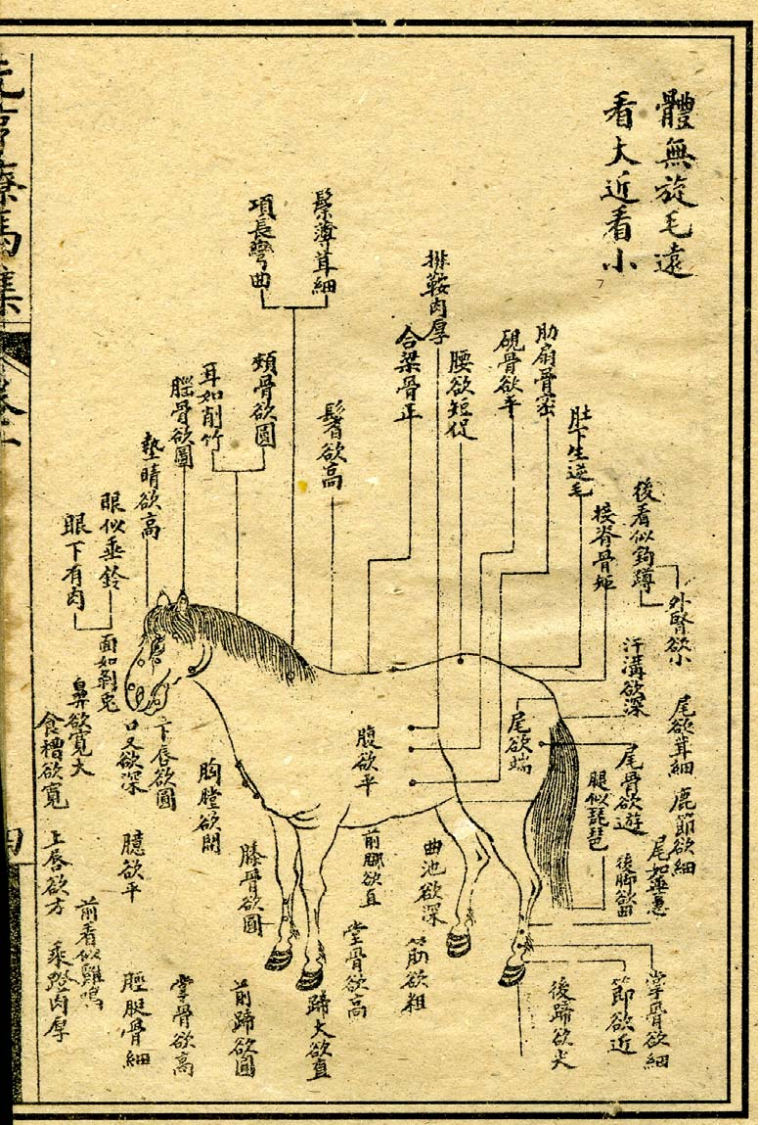 體無旋毛遠
看大近看小
後看似鉤蹲
外腎欲小
接脊骨短
汗溝欲深
肚下生逆毛
肋扇骨密
硯骨欲平
腰欲短促
排鞍肉厚
合梁骨正
鬐欲高
鬃薄茸細
項長彎曲
頰骨欲圓
耳如削竹
腦骨欲圓
墊睛欲高
眼似垂鈴
眼下有肉
面如剝兔
鼻欲寬大
食槽欲寬
口叉欲深
下唇欲圓
胸膛欲闊
腹欲平
尾欲端
尾欲茸細
鹿節欲細
尾骨欲遊
腿似琵琶
後脚欲曲
曲池欲深
前脚欲直
膝骨欲圓
臆欲平
上唇欲方
前看似雞鳴
乘蹬肉厚
脛腿骨細
掌骨欲高
前蹄欲圓
蹄大欲直
堂骨欲高
筋欲粗
後蹄欲大
節欲近
掌骨欲細
療馬集
四